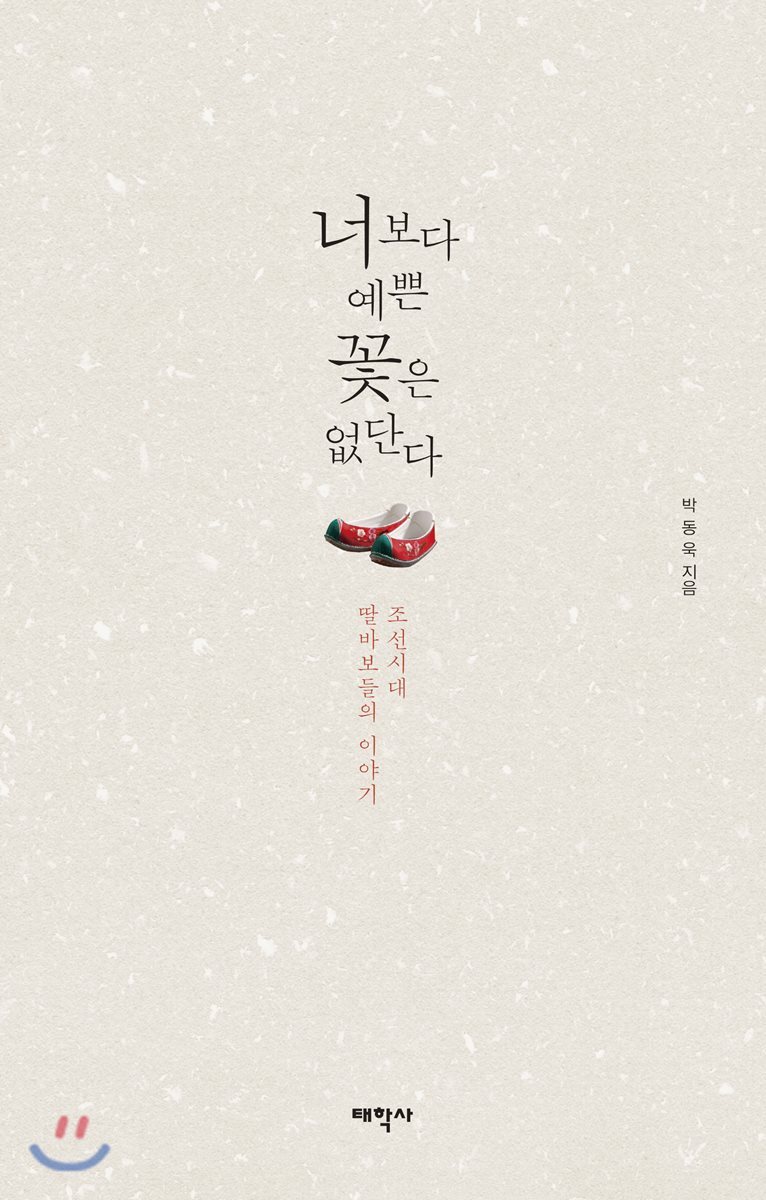 너보다
예쁜
꽃은
없단다
박동욱 지음
조선시대
딸바보들의 이야기
태학사